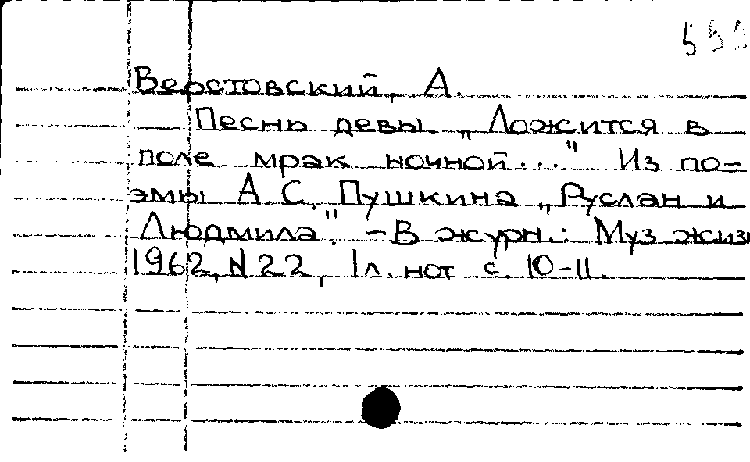 Верстовский, А.
Песнь девы „Ложится в
поле мрак ночной..." Из по-
эмы А.С. Пушкина „Руслан и
Людмила". - В журн.: Муз жиз
1962, N22, 1л. нот с. 10-11.